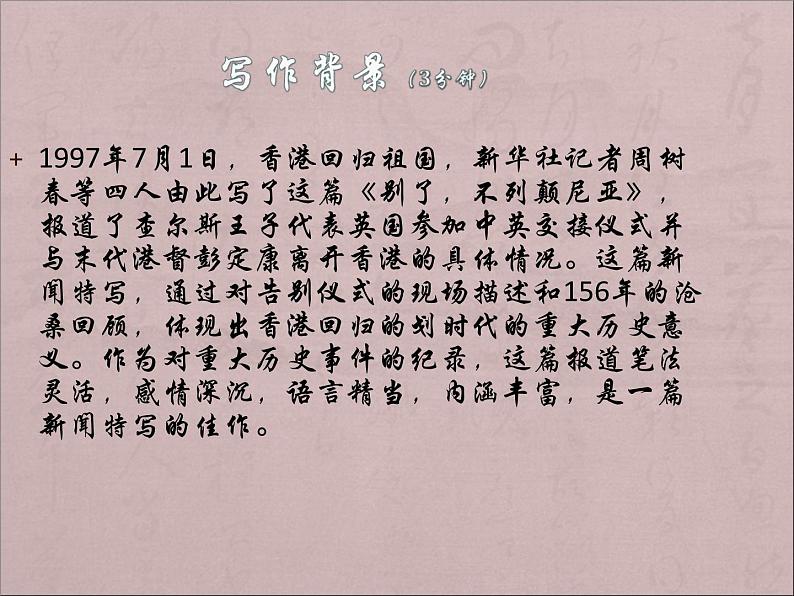 写作背景（3分钟）
+ 1997年7月1日，香港回归祖国，新华社记者周树
春等四人由此写了这篇《别了，不列颠尼亚》，
报道了查尔斯王子代表英国参加中英交接仪式并
与末代港督彭定康离开香港的具体情况。这篇新
闻特写，通过对告别仪式的现场描述和156年的沧
桑回顾，体现出香港回归的划时代的重大历史意
义。作为对重大历史事件的纪录，这篇报道笔法
灵活，感情深沉，语言精当，内涵丰富，是一篇
新闻特写的佳作。